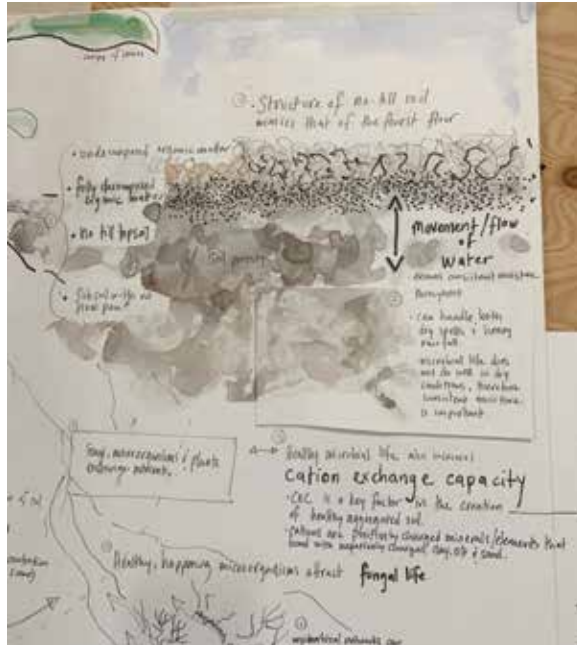 Structure of no-till soil
mimics that of the forest floor
• undecomposed organic matter
• fully decomposed
organic matter
• No till topsoil
• Subsoil with no
plow pan
Movement/flow
of
Water
ensures consistent moisture
throughout
• can handle both
dry spells & heavy
rainfall
• microbial life does
not do well in dry
conditions, therefore
consistent moisture
is important
Fungi, microorganisms & plants
exchange nutrients.
Healthy microbial life also increases
Cation exchange capacity
• CEC is a key factor in the creation
of healthy aggregated soil.
• Cations are positively charged minerals/elements that
bond with negatively charged clay, & sand.
Healthy, happening microorganisms attract fungal life